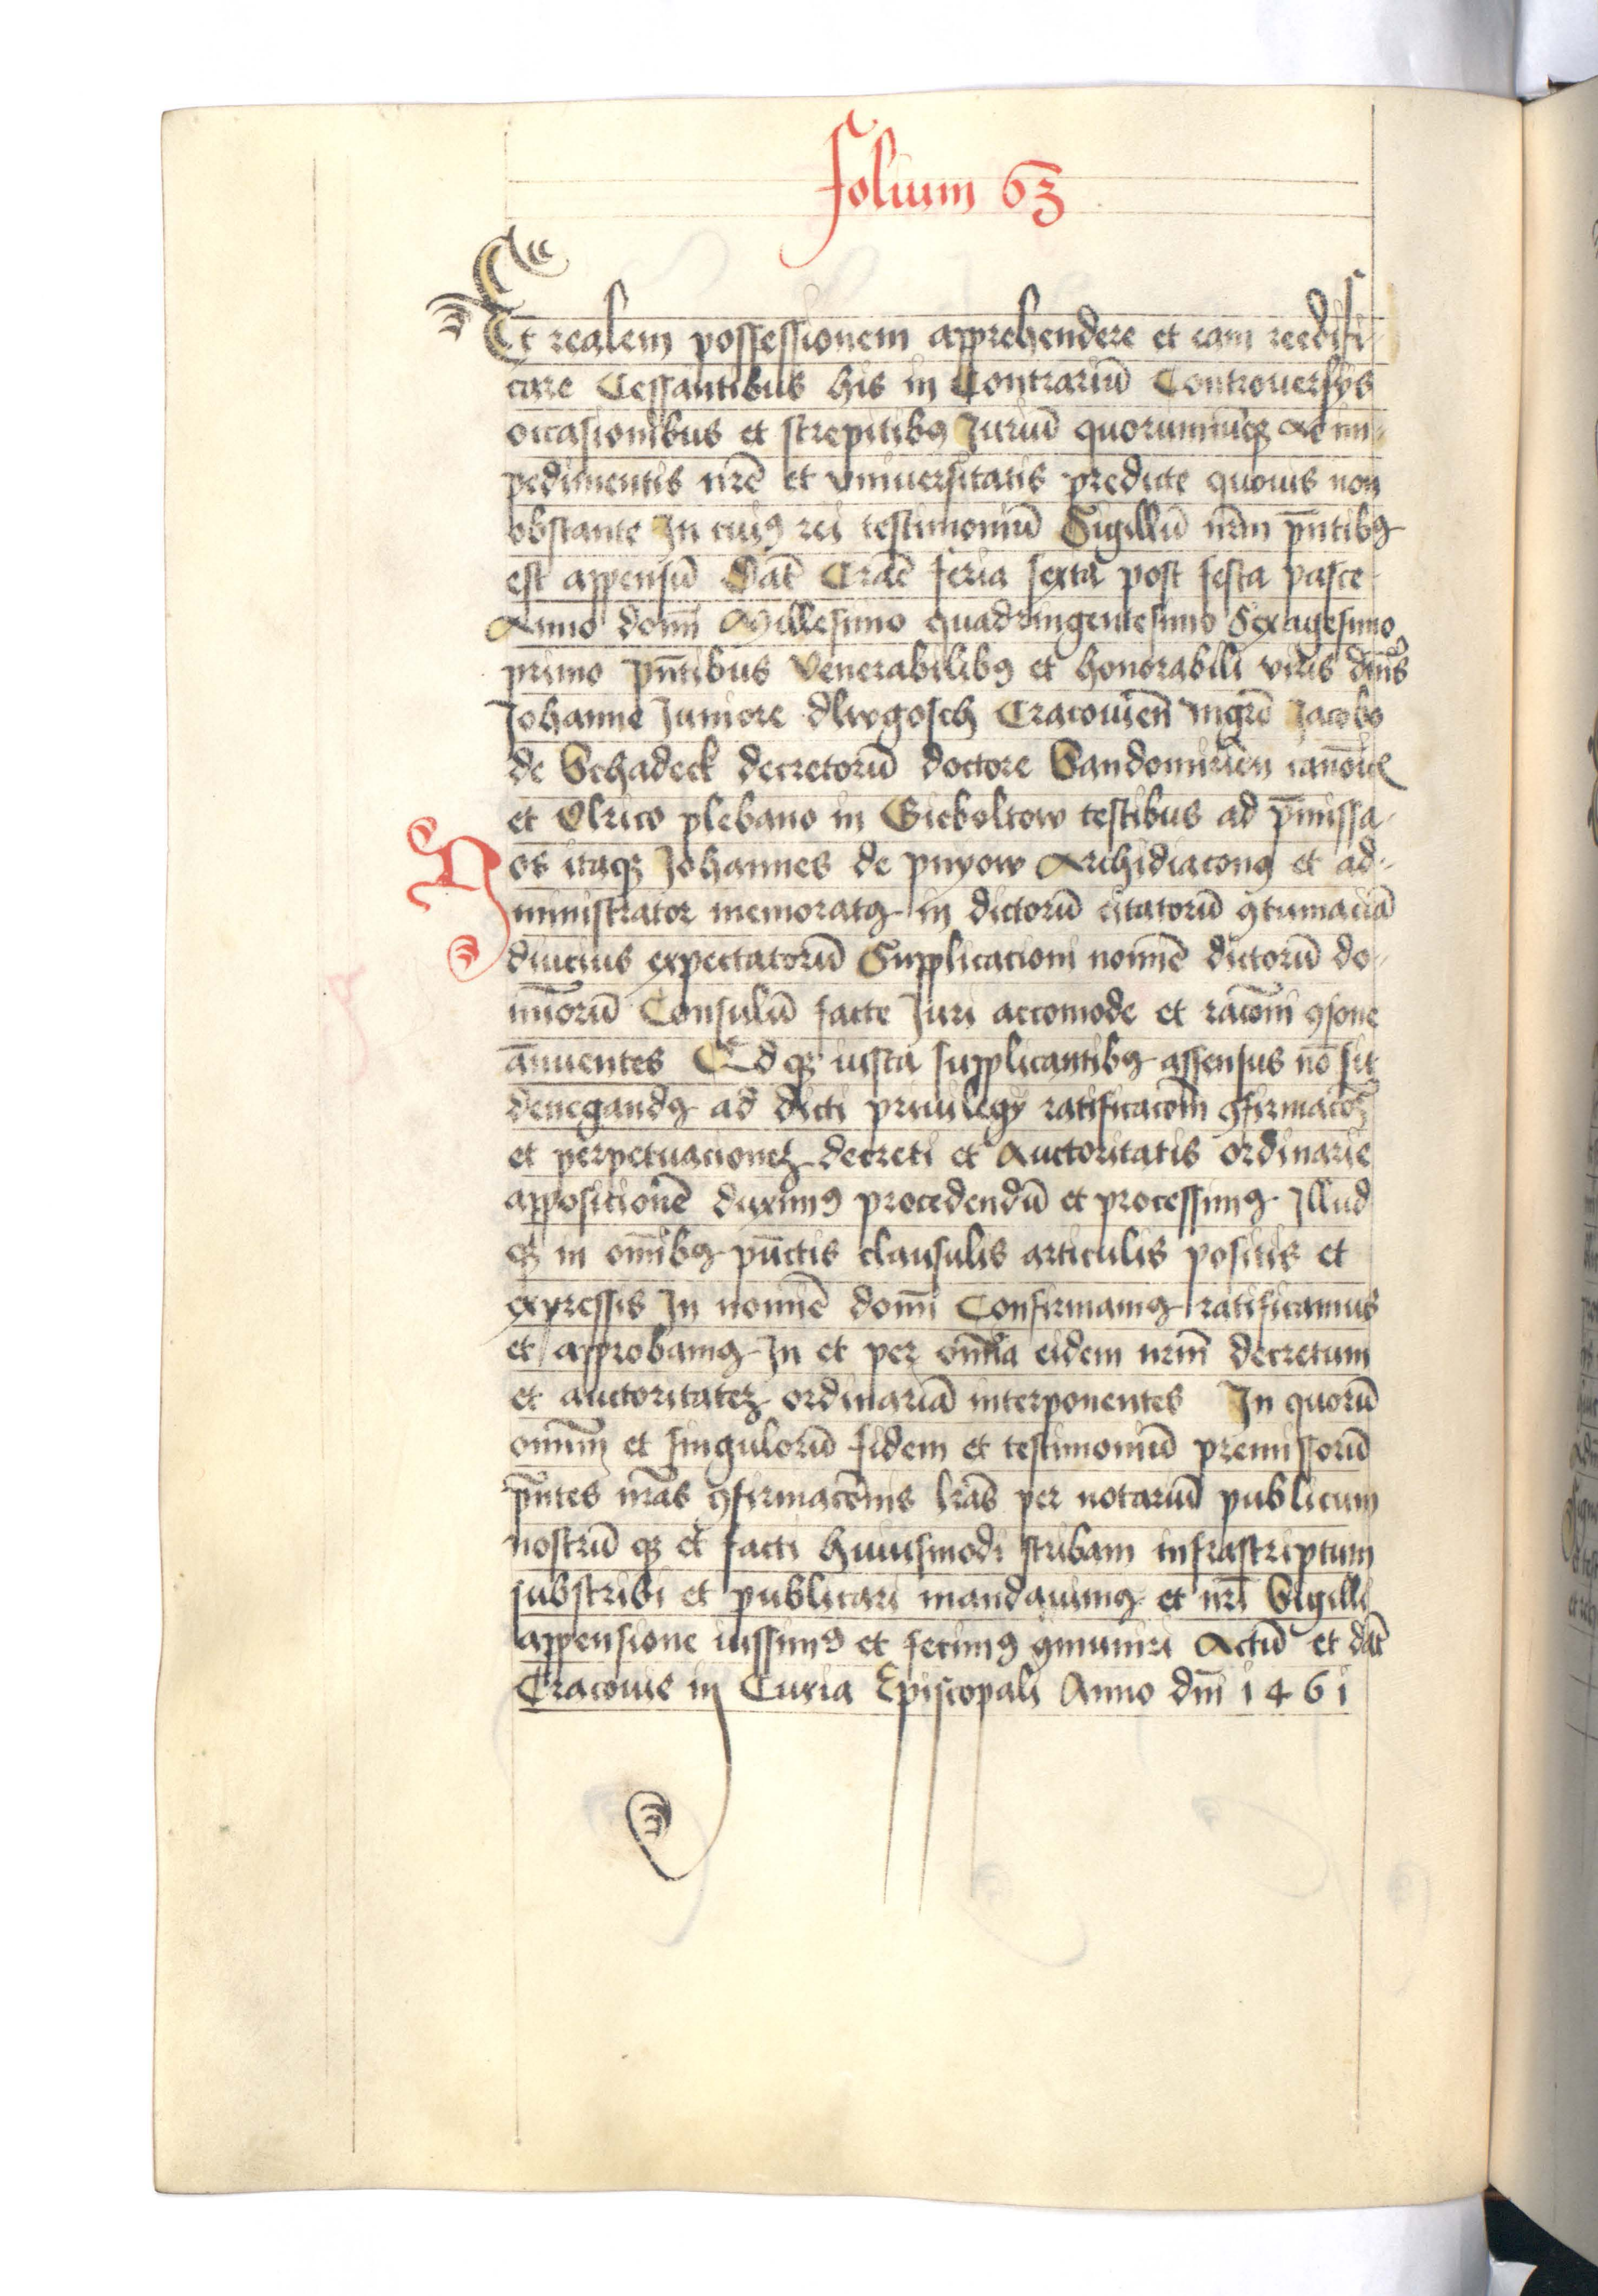 folium 63
Et realem possessionem apprehendere et eam reedifi-
care Cessantibus his in Contrariū Controuersÿs
occasionibus et strepitibꝯ Juriū quorumcūqꝫ Ac im-
pedimentis nr̄e et vniuersitatis predicte quouis non
obstante In cuiꝯ rei testimoniū Sigillū nr̄m pn̄tibꝯ
est appensū Dat̄ Crac̄ feria sexta post festa pasce
Anno domi̅ Millesimo quadringentesimo Sexagesimo
primo pn̄tibus Venerabilibꝯ et honorabili viris dn̄is
Johanne Juniore dlwgosch Cracouien̄ mgr̄o Jacobo
de Schadeck decretorū doctore Sandomirien̄
et Olrico plebano in Gieboltow testibus ad p̄missa
Nos itaqꝫ Johannes de pnyow Archidiaconꝯ et ad-
ministrator memoratꝯ in dictorū citatorū ꝯtumaciā
diucius expectatorū Supplicacioni nomīe dictorū do-
mi̅orū Consulū facte Juri accomode et rac̄oni ꝯsone
an̄uentes Et qꝫ iusta supplicantibꝯ assensus nō sit
denegandꝯ ad dicti priuilegÿ ratificac̄oem ꝯfirmac̄oeꝫ
et perpetuacioneꝫ decreti et Auctoritatis ordinarie
appositionē duximꝯ procedendū et processimꝯ Illud
qꝫ in om̄ibꝯ pūctis clausulis articulis positis et
expressis In nomīe domi̅ Confirmamꝯ ratificamus
et approbamꝯ In et per omnia eidem nr̄m decretum
et auctoritateꝫ ordinariā interponentes In quorū
omniū et singulorū fidem et testimoniū premissorū
pn̄tes nr̄as ꝯfirmac̄onis lr̄as per notariū publicum
nostrū qꝫ et facti huiusmodi scribam infrascriptum
subscribi et publicari mandauimꝯ et nr̄i Sigilli
appensione iussimꝯ et fecimꝯ ꝯmuniri Actū et dat̄
Cracouie in Curia Episcopali Anno dn̄i 1461